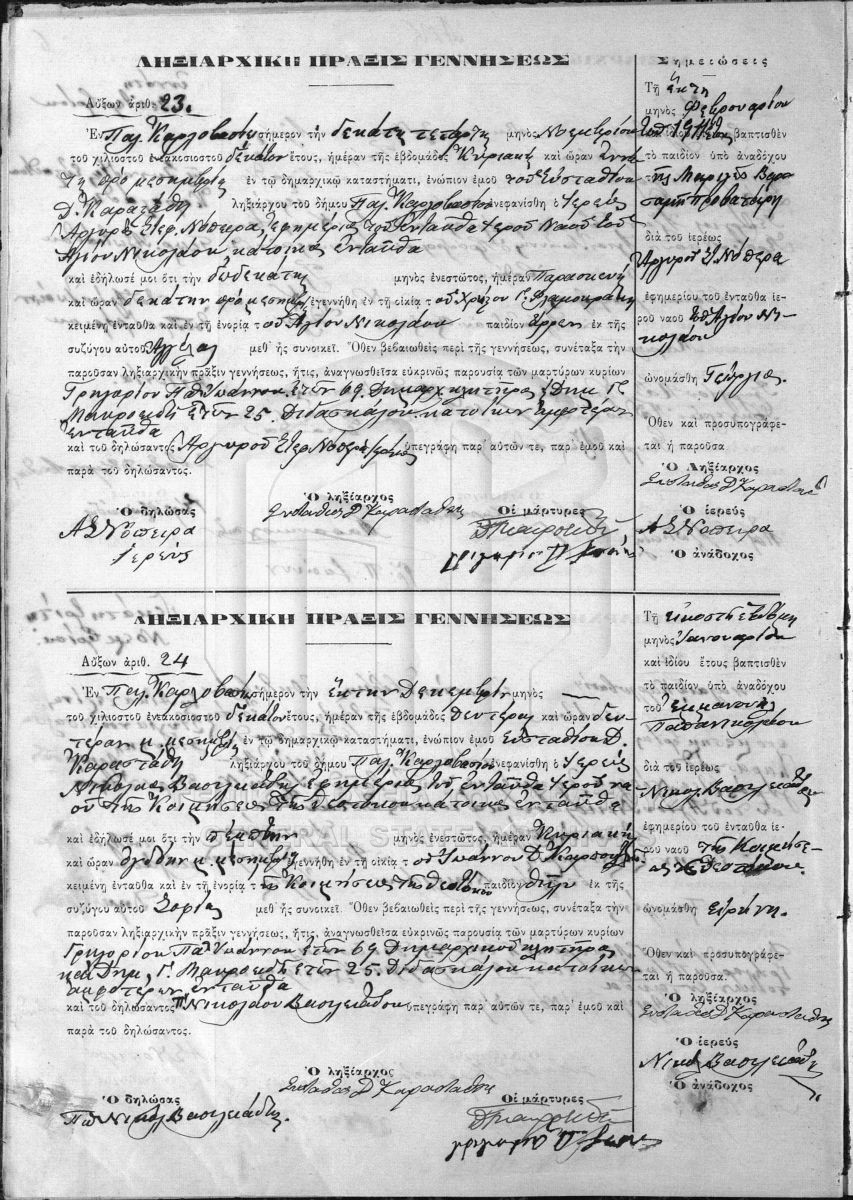 ΛΗΞΙΑΡΧΙΚΗ ΠΡΑΞΙΣ ΓΕΝΝΗΣΕΩΣ
Αὔξων ἀριθ. 23.
Ἐν Παλ. Καρλοβασίῳ σήμερον τὴν δεκάτη τετάρτη μηνὸς Νοεμβρίου
τοῦ χιλιοστοῦ ἐνακοσιοστοῦ δεκάτου ἔτους, ἡμέραν τῆς ἑβδομάδος Κυριακὴ καὶ ὥραν
πρὸ μεσημβρίας ἐν τῷ δημαρχικῷ καταστήματι, ἐνώπιον ἐμοῦ τοῦ Εὐσταθίου
Δ. Καραστάθη ληξιάρχου τοῦ δήμου Παλ. Καρλοβασίου ἐνεφανίσθη ὁ Ἱερεὺς
Ἀργυρὸς ἐφημέριος τοῦ ἐνταῦθα Ἱεροῦ Ναοῦ τοῦ
Ἁγίου Νικολάου, κάτοικος ἐνταῦθα
καὶ ἐδήλωσέ μοι ὅτι τὴν δωδεκάτην μηνὸς ἐνεστῶτος, ἡμέραν Παρασκευὴ
καὶ ὥραν δεκάτην πρὸ μεσημβρ. ἐγεννήθη ἐν τῇ οἰκίᾳ τοῦ
κειμένῃ ἐνταῦθα καὶ ἐν τῇ ἐνορίᾳ τοῦ Ἁγίου Νικολάου παιδίον ἄρρεν ἐκ τῆς
συζύγου αὐτοῦ μεθ' ἧς συνοικεῖ. Ὅθεν βεβαιωθεὶς περὶ τῆς γεννήσεως, συνέταξα τὴν
παροῦσαν ληξιαρχικὴν πρᾶξιν γεννήσεως, ἥτις, ἀναγνωσθεῖσα εὐκρινῶς παρουσίᾳ τῶν μαρτύρων κυρίων
Γρηγορίου Παπᾶ Ἰωάννου ἐτῶν 69, Δημαρχ. κλητῆρος & Δημ. Γ.
ἐτῶν 25, Διδασκάλου, κατοίκων ἀμφοτέρων
ἐνταῦθα
καὶ τοῦ δηλώσαντος Ἀργυροῦ ὑπεγράφη παρ' αὐτῶν τε, παρ' ἐμοῦ καὶ
παρὰ τοῦ δηλώσαντος.
Ὁ δηλώσας
Ἱερεύς
Ὁ ληξίαρχος
Εὐστάθιος Δ Καραστάθης
Οἱ μάρτυρες
Σημειώσεις
Τῇ ἕκτῃ
μηνὸς Φεβρουαρίου
βαπτισθὲν
τὸ παιδίον ὑπὸ ἀναδόχου
διὰ τοῦ ἱερέως
Ἀργυροῦ
ἐφημερίου τοῦ ἐνταῦθα ἱε-
ροῦ ναοῦ τοῦ Ἁγίου Νι-
κολάου
ὠνομάσθη Γεώργιος.
Ὅθεν καὶ προσυπογράφε-
ται ἡ παροῦσα
Ὁ Ληξίαρχος
Εὐστάθιος Δ Καραστάθης
Ὁ ἱερεύς
Ὁ ἀνάδοχος
ΛΗΞΙΑΡΧΙΚΗ ΠΡΑΞΙΣ ΓΕΝΝΗΣΕΩΣ
Αὔξων ἀριθ. 24
Ἐν Παλ. Καρλοβασίῳ σήμερον τὴν ἕκτην Δεκεμβρίου μηνὸς
τοῦ χιλιοστοῦ ἐνακοσιοστοῦ δεκάτου ἔτους, ἡμέραν τῆς ἑβδομάδος Δευτέραν καὶ ὥραν δευ-
τέραν μ. μεσημβρ. ἐν τῷ δημαρχικῷ καταστήματι, ἐνώπιον ἐμοῦ Εὐσταθίου Δ.
Καραστάθη ληξιάρχου τοῦ δήμου Παλ. Καρλοβασίου ἐνεφανίσθη ὁ Ἱερεὺς
Νικόλαος Βασιλειάδης ἐφημέριος τοῦ ἐνταῦθα Ἱεροῦ να-
οῦ τῆς Κοιμήσεως τῆς Θεοτόκου κάτοικος ἐνταῦθα
καὶ ἐδήλωσέ μοι ὅτι τὴν πέμπτην μηνὸς ἐνεστῶτος, ἡμέραν Κυριακὴν
καὶ ὥραν ὀγδόην μ. μεσημβρίαν ἐγεννήθη ἐν τῇ οἰκίᾳ τοῦ Ἰωάννου Δ.
κειμένῃ ἐνταῦθα καὶ ἐν τῇ ἐνορίᾳ τῆς Κοιμήσεως τῆς Θεοτόκου παιδίον θῆλυ ἐκ τῆς
συζύγου αὐτοῦ Σοφίας μεθ' ἧς συνοικεῖ. Ὅθεν βεβαιωθεὶς περὶ τῆς γεννήσεως, συνέταξα τὴν
παροῦσαν ληξιαρχικὴν πρᾶξιν γεννήσεως, ἥτις, ἀναγνωσθεῖσα εὐκρινῶς παρουσίᾳ τῶν μαρτύρων κυρίων
Γρηγορίου Παπ. Ἰωάννου ἐτῶν 69, Δημαρχικοῦ κλητῆρος
καὶ Δημ. Γ. ἐτῶν 25, Διδασκάλου κατοίκων
ἀμφοτέρων ἐνταῦθα
καὶ τοῦ δηλώσαντος Π. Νικολάου Βασιλειάδου ὑπεγράφη παρ' αὐτῶν τε, παρ' ἐμοῦ καὶ
παρὰ τοῦ δηλώσαντος.
Ὁ δηλώσας
Νικόλ Βασιλειάδης.
Ὁ ληξίαρχος
Εὐστάθιος Δ Καραστάθης
Οἱ μάρτυρες
Τῇ εἰκοστῇ ἑβδόμῃ
μηνὸς Ἰανουαρίου
καὶ ἰδίου ἔτους βαπτισθὲν
τὸ παιδίον ὑπὸ ἀναδόχου
τοῦ Ἐμμανουὴλ
Παπανικολάου
διὰ τοῦ ἱερέως
Νικολ. Βασιλειάδου
ἐφημερίου τοῦ ἐνταῦθα ἱε-
ροῦ ναοῦ τῆς Κοιμήσε-
ως τῆς Θεοτόκου.
ὠνομάσθη Εἰρήνη.
Ὅθεν καὶ προσυπογράφε-
ται ἡ παροῦσα.
Ὁ ληξίαρχος
Εὐστάθιος Δ Καραστάθης
Ὁ ἱερεύς
Νικολ Βασιλειάδης
Ὁ ἀνάδοχος